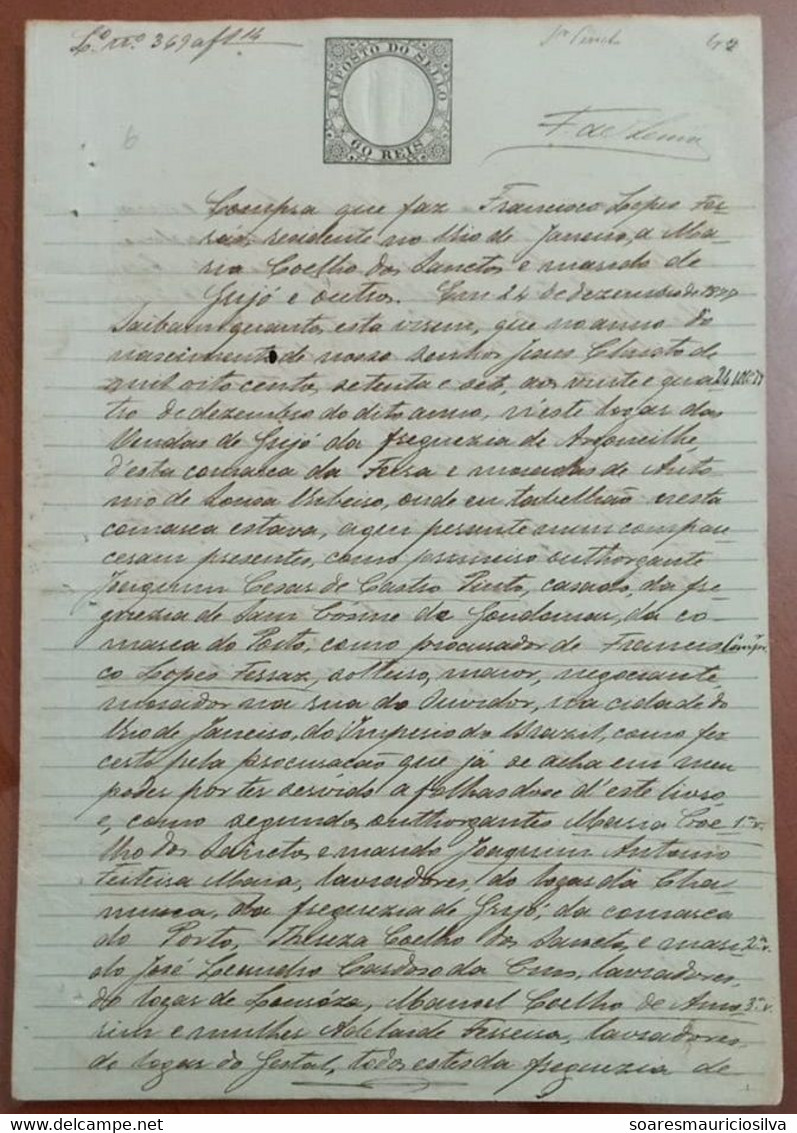 L.º n.º 369 a f 14
IMPOSTO DO SELLO
60 REIS
Compra que faz Francisco Lopes Fer-
raz, residente no Rio de Janeiro, a Ma-
ria Coelho dos Sanctos e marido de
Grijó e outros. Em 24 de dezembro de 1877
Saibam quantos esta virem, que no anno do
nascimento de nosso Senhor Jesus Christo de
mil oito centos setenta e sete, aos vinte e qua-
tro de dezembro do dito anno, n'este logar das
Vendas de Grijó da freguezia de Argoncilhe,
d'esta comarca da Feira e moradas de Anto-
nio de Sousa Ribeiro, onde eu tabellião n'esta
comarca estava, aqui perante mim compare-
ceram presentes, como primeiro outhorgante
Joaquim Cesar de Castro Pinto, casado, da fre-
guezia de Sam Cósme de Gondomar, da co-
marca do Porto, como procurador de Francis-
co Lopes Ferraz, solteiro, maior, negociante,
morador na rua do Ouvidor, na cidade do
Rio de Janeiro, do Imperio do Brazil, como fez
certo pela procuração que já se acha em meu
poder por ter servido a folhas doze d'este livro,
e, como segundos outhorgantes Maria Coe- 1.ºs v.
lho dos Sanctos e marido Joaquim Antonio
Teixeira Maia, lavradores, do logar da Cha-
musca, da freguezia de Grijó, da comarca
do Porto, Thereza Coelho dos Sanctos e mari- 2.ºs v.
do José Leandro Cardoso da Cruz, lavradores,
do logar de Loureza, Manoel Coelho de Amo- 3.ºs v.
rim e mulher Adelaide Ferreira, lavradores,
do logar do Gestal, todos estes da freguezia de
soaresmauriciosilva